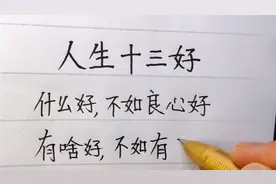 人生十三好
什么好,不如良心好
有啥好,不如有